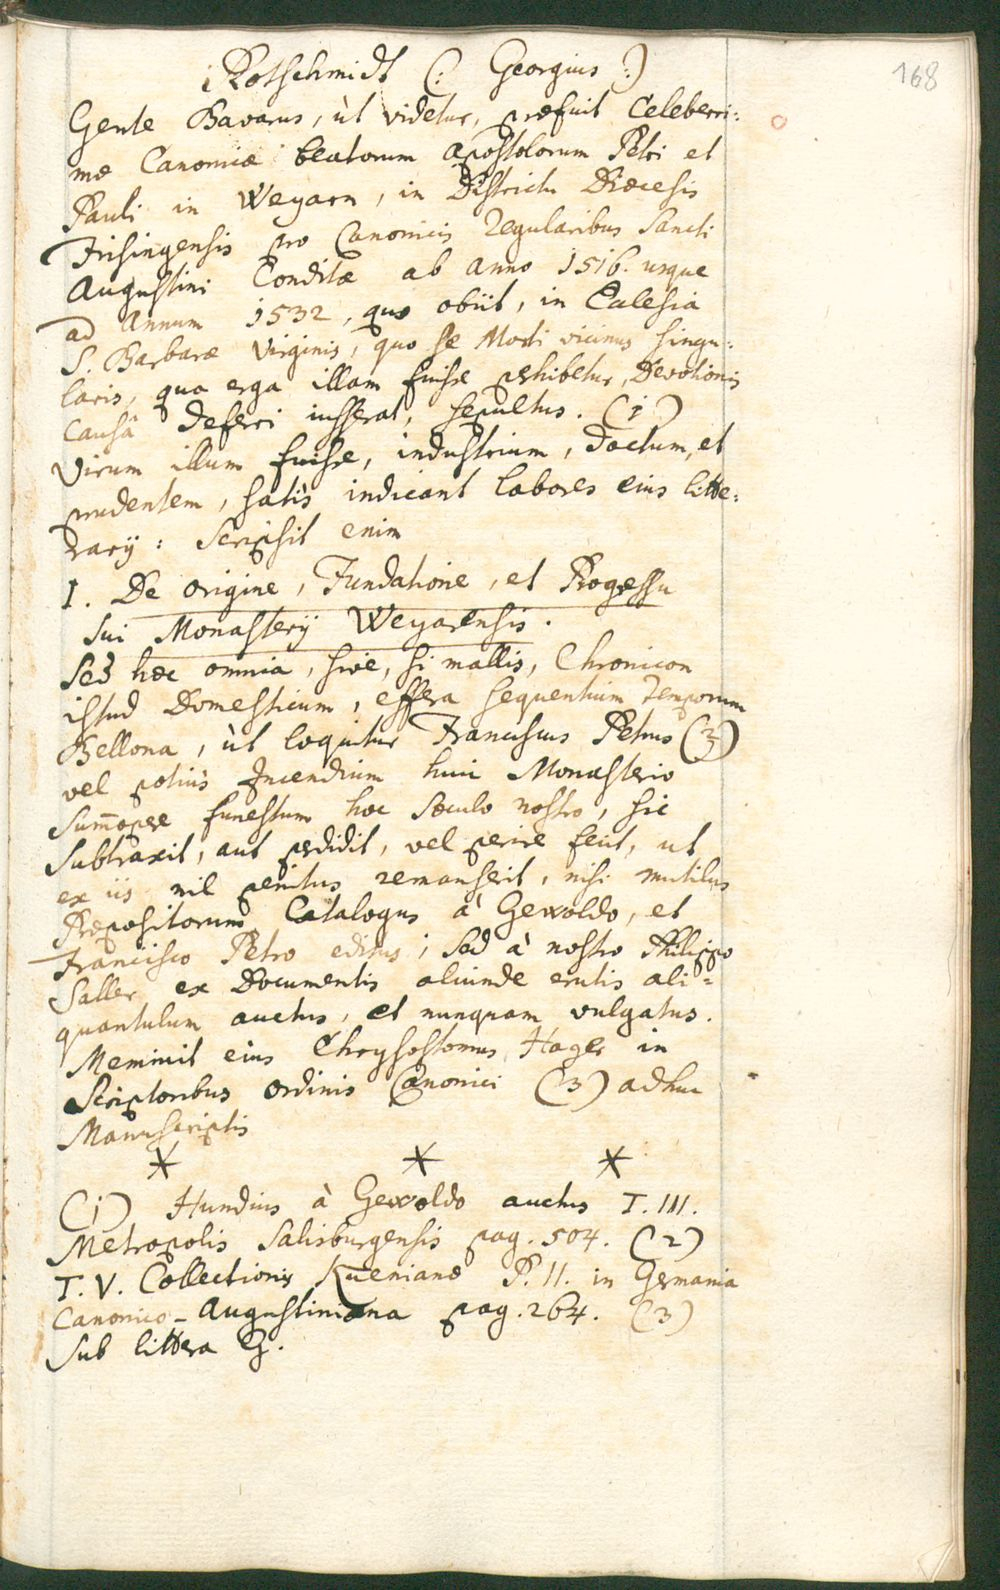 168
Rotschmidt (: Georgius :)
Gente Bavarus, ùt videtur, præfuit Celeberri:
mæ Canoniæ beatorum Apostolorum Petri et
Pauli in Weyarn, in Districtu Diœcesis
Frisingensis pro Canonicis Regularibus Sancti
Augustini Conditæ ab anno 1516. usque
ad Annum 1532, quo obiit, in Ecclesia
S. Barbaræ Virginis, quo se Morti vicinus singu:
laris, qua erga illam fuisse perhibetur, Devotionis
causâ deferri iusserat, sepultus. (1)
Virum illum fuisse, industrium, doctum, et
prudentem, satis indicant labores eius litte:
rarij: Scripsit enim
I. De origine, Fundatione, et Progessu
sui Monasterij Weyarensis.
Sed hæc omnia, sive, si mallis, Chronicon
istud Domesticum, effera sequentium Temporum
Bellona, ùt loquitur Franciscus Petrus (2)
vel potiùs Incendium huic Monasterio
summopere funestum hoc sæculo nostro, sic
subtraxit, aut perdidit, vel perire fecit, ut
ex iis nil penitus remanserit, nisi mutilus
Præpositorum Catalogus à Gewoldo, et
Francisco Petro editus; sed à nostro Philippo
Saller ex Documentis aliunde erutis ali=
quantulum auctus, et nunquam vulgatus.
Meminit eius Chrysostomus Hager in
Scriptoribus ordinis Canonici (3) adhuc
Manuscriptis
* * *
(1) Hundius à Gewoldo auctus T. III.
Metropolis Salisburgensis pag. 504. (2)
T. V. Collectionis Kuenianæ P. II. in Germania
Canonico-Augustiniana pag. 264. (3)
Sub littera G.